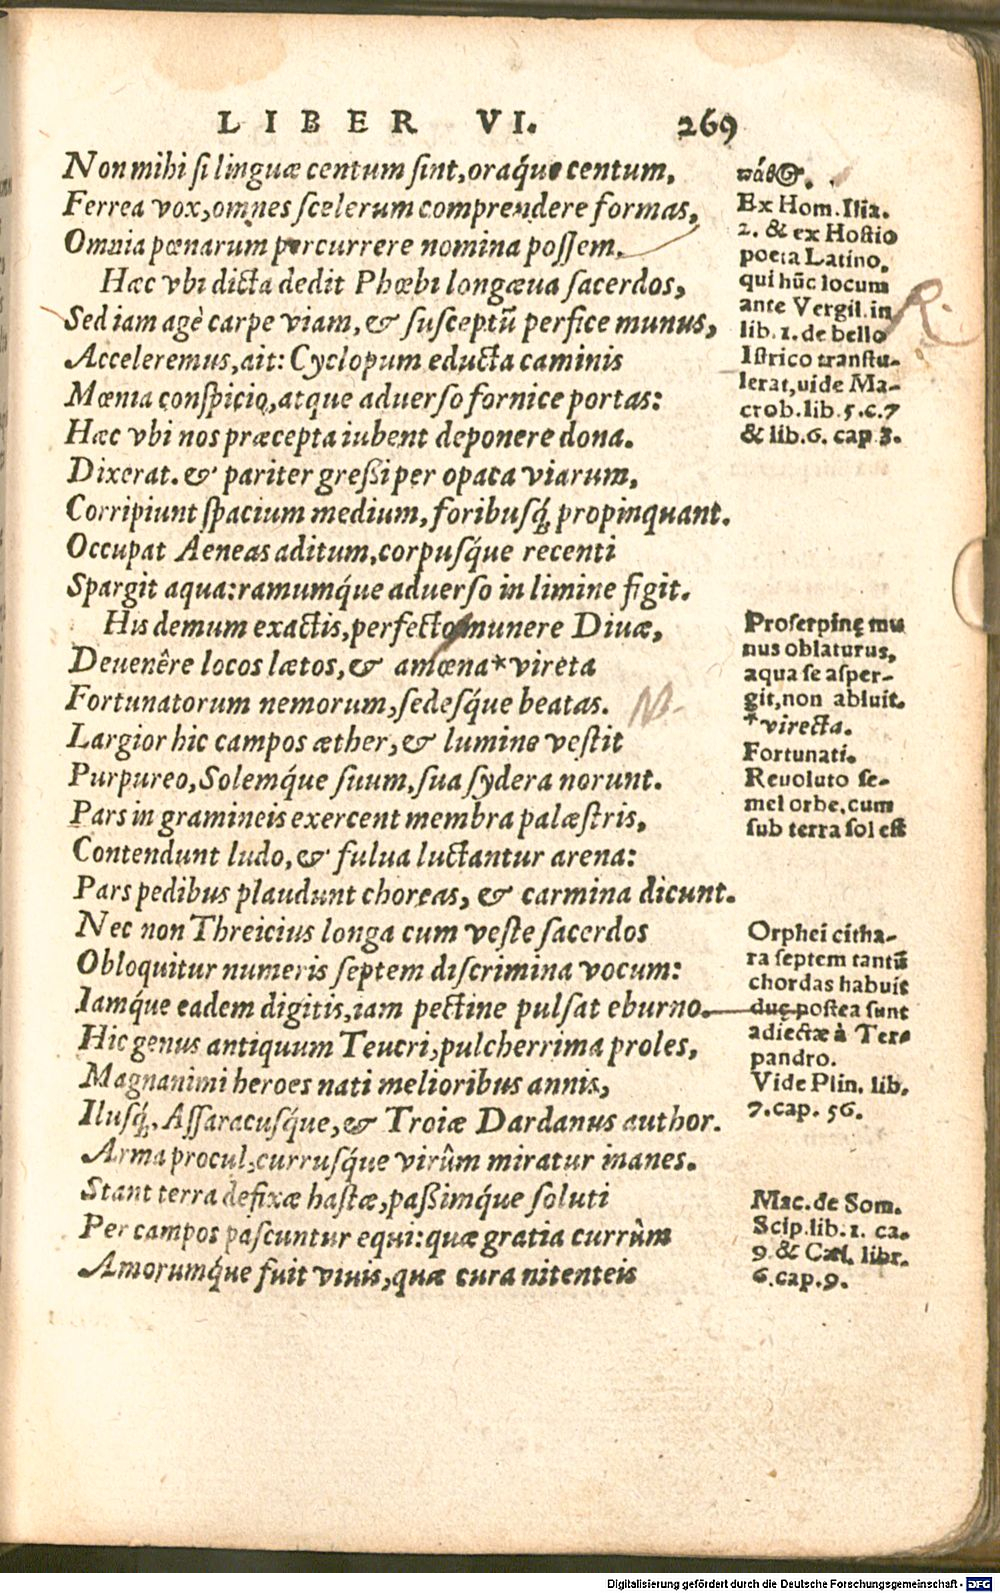 LIBER VI. 269
Non mihi si linguæ centum sint, oraq́ue centum,
Ferrea vox, omnes scelerum comprendere formas,
Omnia pœnarum percurrere nomina possem.
Hæc vbi dicta dedit Phœbi longæua sacerdos,
Sed iam agè carpe viam, & susceptũ perfice munus,
Acceleremus, ait: Cyclopum educta caminis
Mœnia conspicio, atque aduerso fornice portas:
Hæc vbi nos præcepta iubent deponere dona.
Dixerat. & pariter greßi per opaca viarum,
Corripiunt spacium medium, foribusq́; propinquant.
Occupat Aeneas aditum, corpusq́ue recenti
Spargit aqua: ramumq́ue aduerso in limine figit.
His demum exactis, perfecto munere Diuæ,
Deuenêre locos lætos, & amœna * vireta
Fortunatorum nemorum, sedesq́ue beatas.
Largior hic campos æther, & lumine vestit
Purpureo, Solemq́ue suum, sua sydera norunt.
Pars in gramineis exercent membra palæstris,
Contendunt ludo, & fulua luctantur arena:
Pars pedibus plaudunt choreas, & carmina dicunt.
Nec non Threicius longa cum veste sacerdos
Obloquitur numeris septem discrimina vocum:
Iamq́ue eadem digitis, iam pectine pulsat eburno.
Hic genus antiquum Teucri, pulcherrima proles,
Magnanimi heroes nati melioribus annis,
Ilusq́;, Assaracusq́ue, & Troiæ Dardanus author.
Arma procul, currusq́ue virûm miratur inanes.
Stant terra defixæ hastæ, paßimq́ue soluti
Per campos pascuntur equi: quæ gratia currûm
Amorumq́ue fuit viuis, quæ cura nitenteis
πάθος.
Ex Hom. Ilia.
2. & ex Hostio
poeta Latino,
qui hũc locum
ante Vergil. in
lib. 1. de bello
Istrico transtu-
lerat, uide Ma-
crob. lib. 5. c. 7
& lib. 6. cap 3.
R.
Proserpinę mu
nus oblaturus,
aqua se asper-
git, non abluit.
* virecta.
Fortunati.
Reuoluto se-
mel orbe, cum
sub terra sol est
Orphei citha-
ra septem tantũ
chordas habuit
duę postea sunt
adiectæ à Ter-
pandro.
Vide Plin. lib.
7. cap. 56.
Mac. de Som.
Scip. lib. 1. ca.
9 & Cæl. libr.
6. cap. 9.
Digitalisierung gefördert durch die Deutsche Forschungsgemeinschaft - DFG